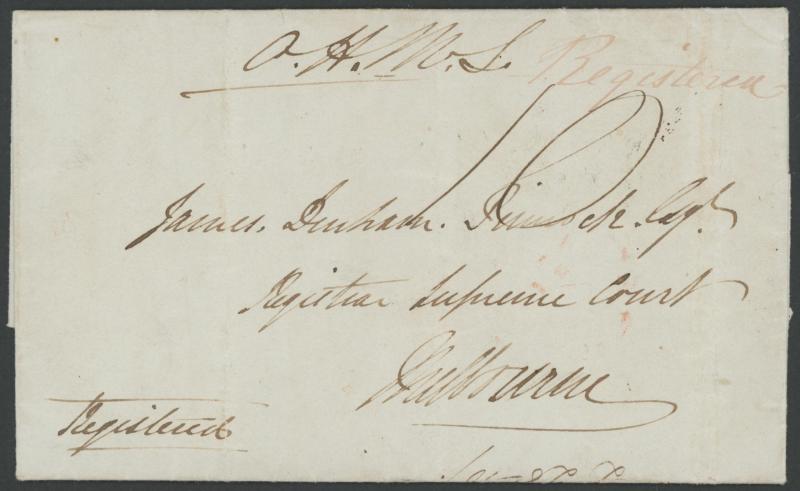 O.H.M.S. Registered
James. Denham. Pinnock. Esqr.
Registrar Supreme Court
Melbourne
Registered